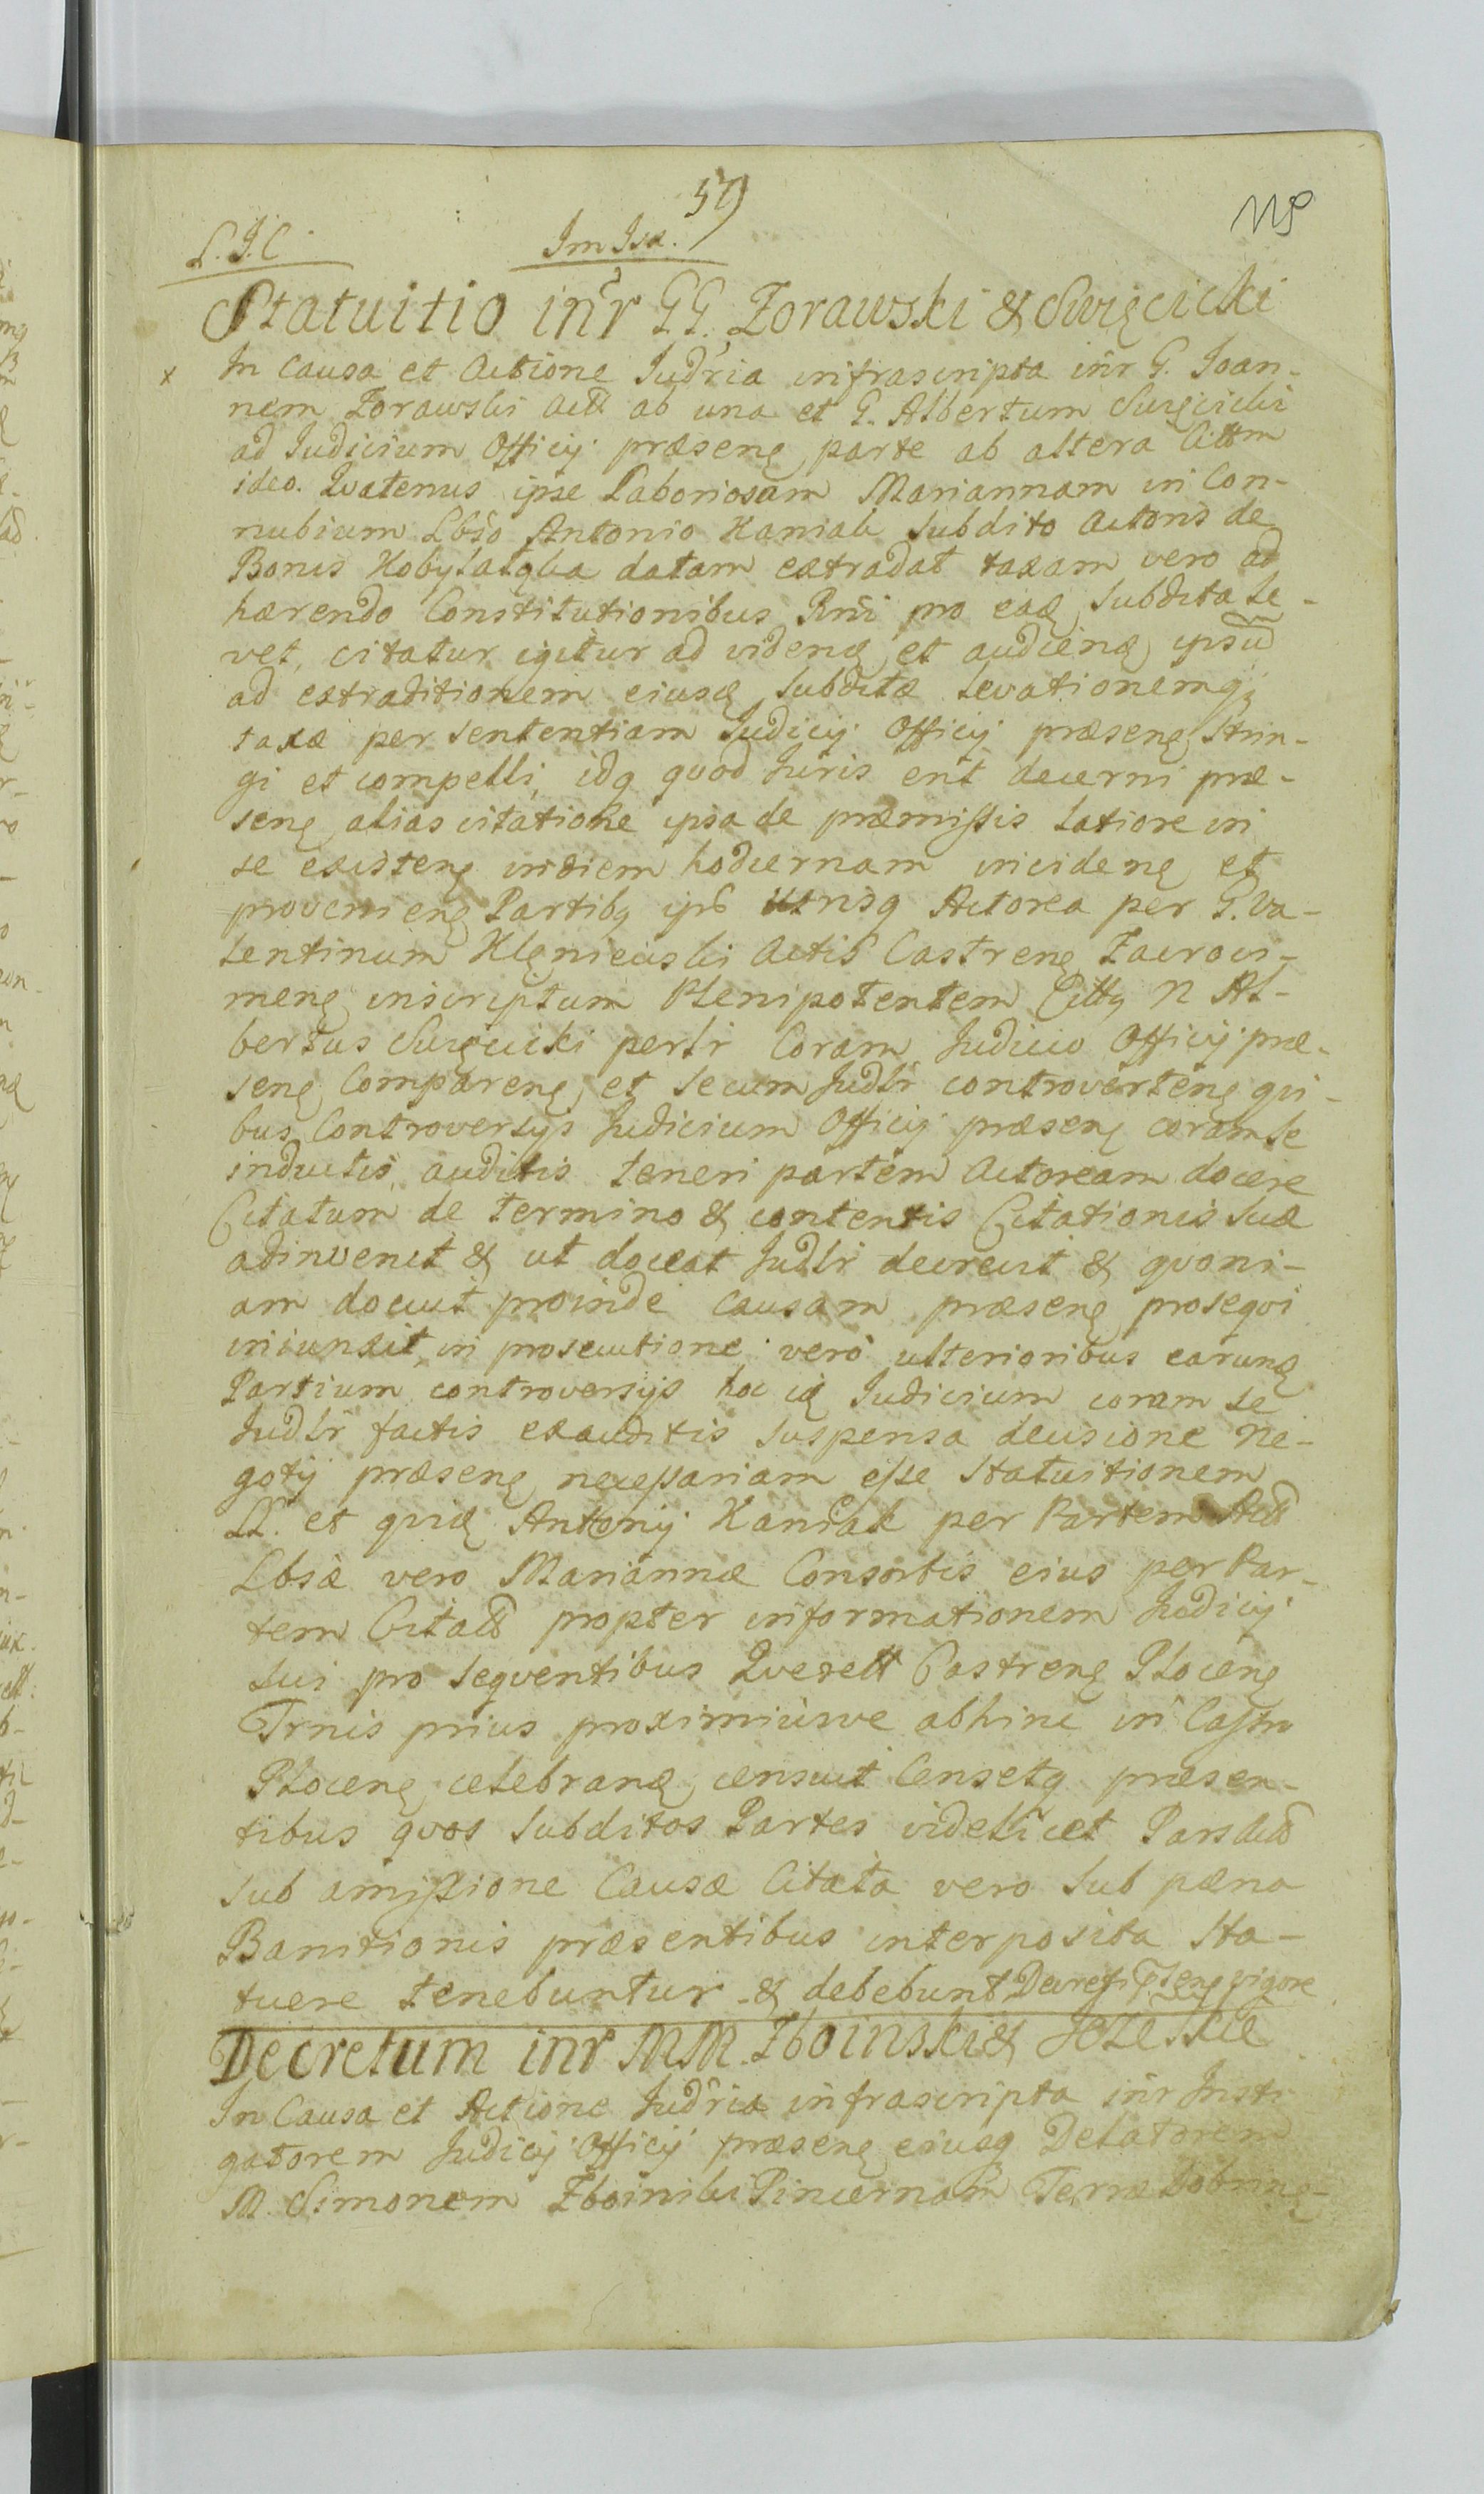 59
L. J. C
Statuitio inr̃ GG. Zorawski & Swięcicki
x In Causa et Actione Judr̃ia infrascripta inr̃ G. Joan-
nem Zorawski Act̃ ab una et G. Albertum Swięcicki
ad Judicium Officij præsenꝫ parte ab altera Citt̃m
ideo. Qvatenus ipse Laboriosam Mariannam in Con-
nubium Lbs̃o Antonio Kaniak Subdito Actoris de
Bonis datam extradat taxam vero ad
hærendo Constitutionibus Rñi pro eaꝫ Subdita le-
vet, citatur igitur ad videnꝫ et audienꝫ ipsũ
ad extraditionem eiusꝫ Subditæ levationemqꝫ
taxæ per sententiam Judicij Officij præsenꝫ strin-
gi et compelli, idqꝫ qvod Juris erit decerni præ-
senꝫ alias citatione ipsa de præmissis latiore in
se existenꝫ in diem hodiernam incidenꝫ et
provenienꝫ Partibꝫ ips̃ Actorea per G. Va-
lentinum Klęniewski Actis Castrenꝫ Zacroci-
menꝫ inscriptum Plenipotentem Cittꝫ N Al-
bertus Swięcicki perlr̃ Coram Judicio Officij præ-
senꝫ Comparenꝫ et secum Judlr̃ controvertenꝫ qvi-
bus Controversijs Judicium Officij præsenꝫ coram se
inductis, auditis teneri partem Actoream docere
Citatum de termino & contentis Citationis suæ
adinvenit & ut doceat Judlr̃ decrevit & qvoni-
am docuit proinde causam præsenꝫ proseqvi
iniunxit, in prosecutione vero ulterioribus earunꝫ
Partium controversijs hoc iꝫ Judicium coram se
Judlr̃ factis exauditis suspensa decisione Ne-
gotij præsenꝫ necessariam esse Statuitionem
LL. et qviꝫ Antonij Kaniak per Partem Act̃
Lbsæ vero Mariannæ Consortis eius per Par-
tem Citat̃ propter informationem Judicij
sui pro seqventibus Qverell Castrenꝫ Plocenꝫ
Trnis prius proximiusve abhinc in Castro
Plocenꝫ celebranꝫ censuit Censetqꝫ præsen-
tibus qvos Subditos Partes videlicet Pars Act̃
sub amissione Causæ Citata vero sub pæna
Banitionis præsentibus interposita Sta-
tuere tenebuntur & debebunt Decreti vigore
Decretum inr̃ MM. Zboinski &
In Causa et Actione Judr̃ia infrascripta inr̃ Insti
gatorem Judicij Officij præsenꝫ eiusqꝫ Delatorem
M. Simonem Zboinski Pincernam Terræ Dobrinenꝫ-